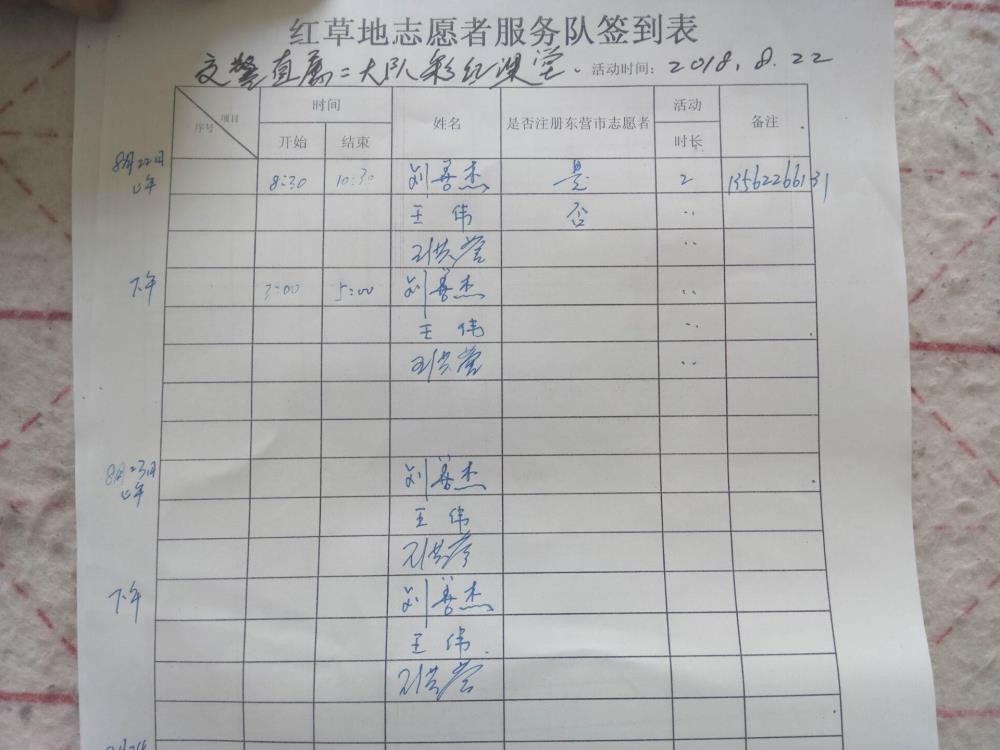 红草地志愿者服务队签到表
交警直属二大队彩虹课堂. 活动时间: 2018.8.22
项目 序号 时间 姓名 是否注册东营市志愿者 活动 备注
开始 结束 时长
8月22日 上午 8:30 10:30 刘善杰 是 2 13562266131
王伟 否 ..
..
下午 3:00 5:00 刘善杰 ..
王伟 ..
..
8月23日 上午 刘善杰
王伟
下午 刘善杰
王伟.